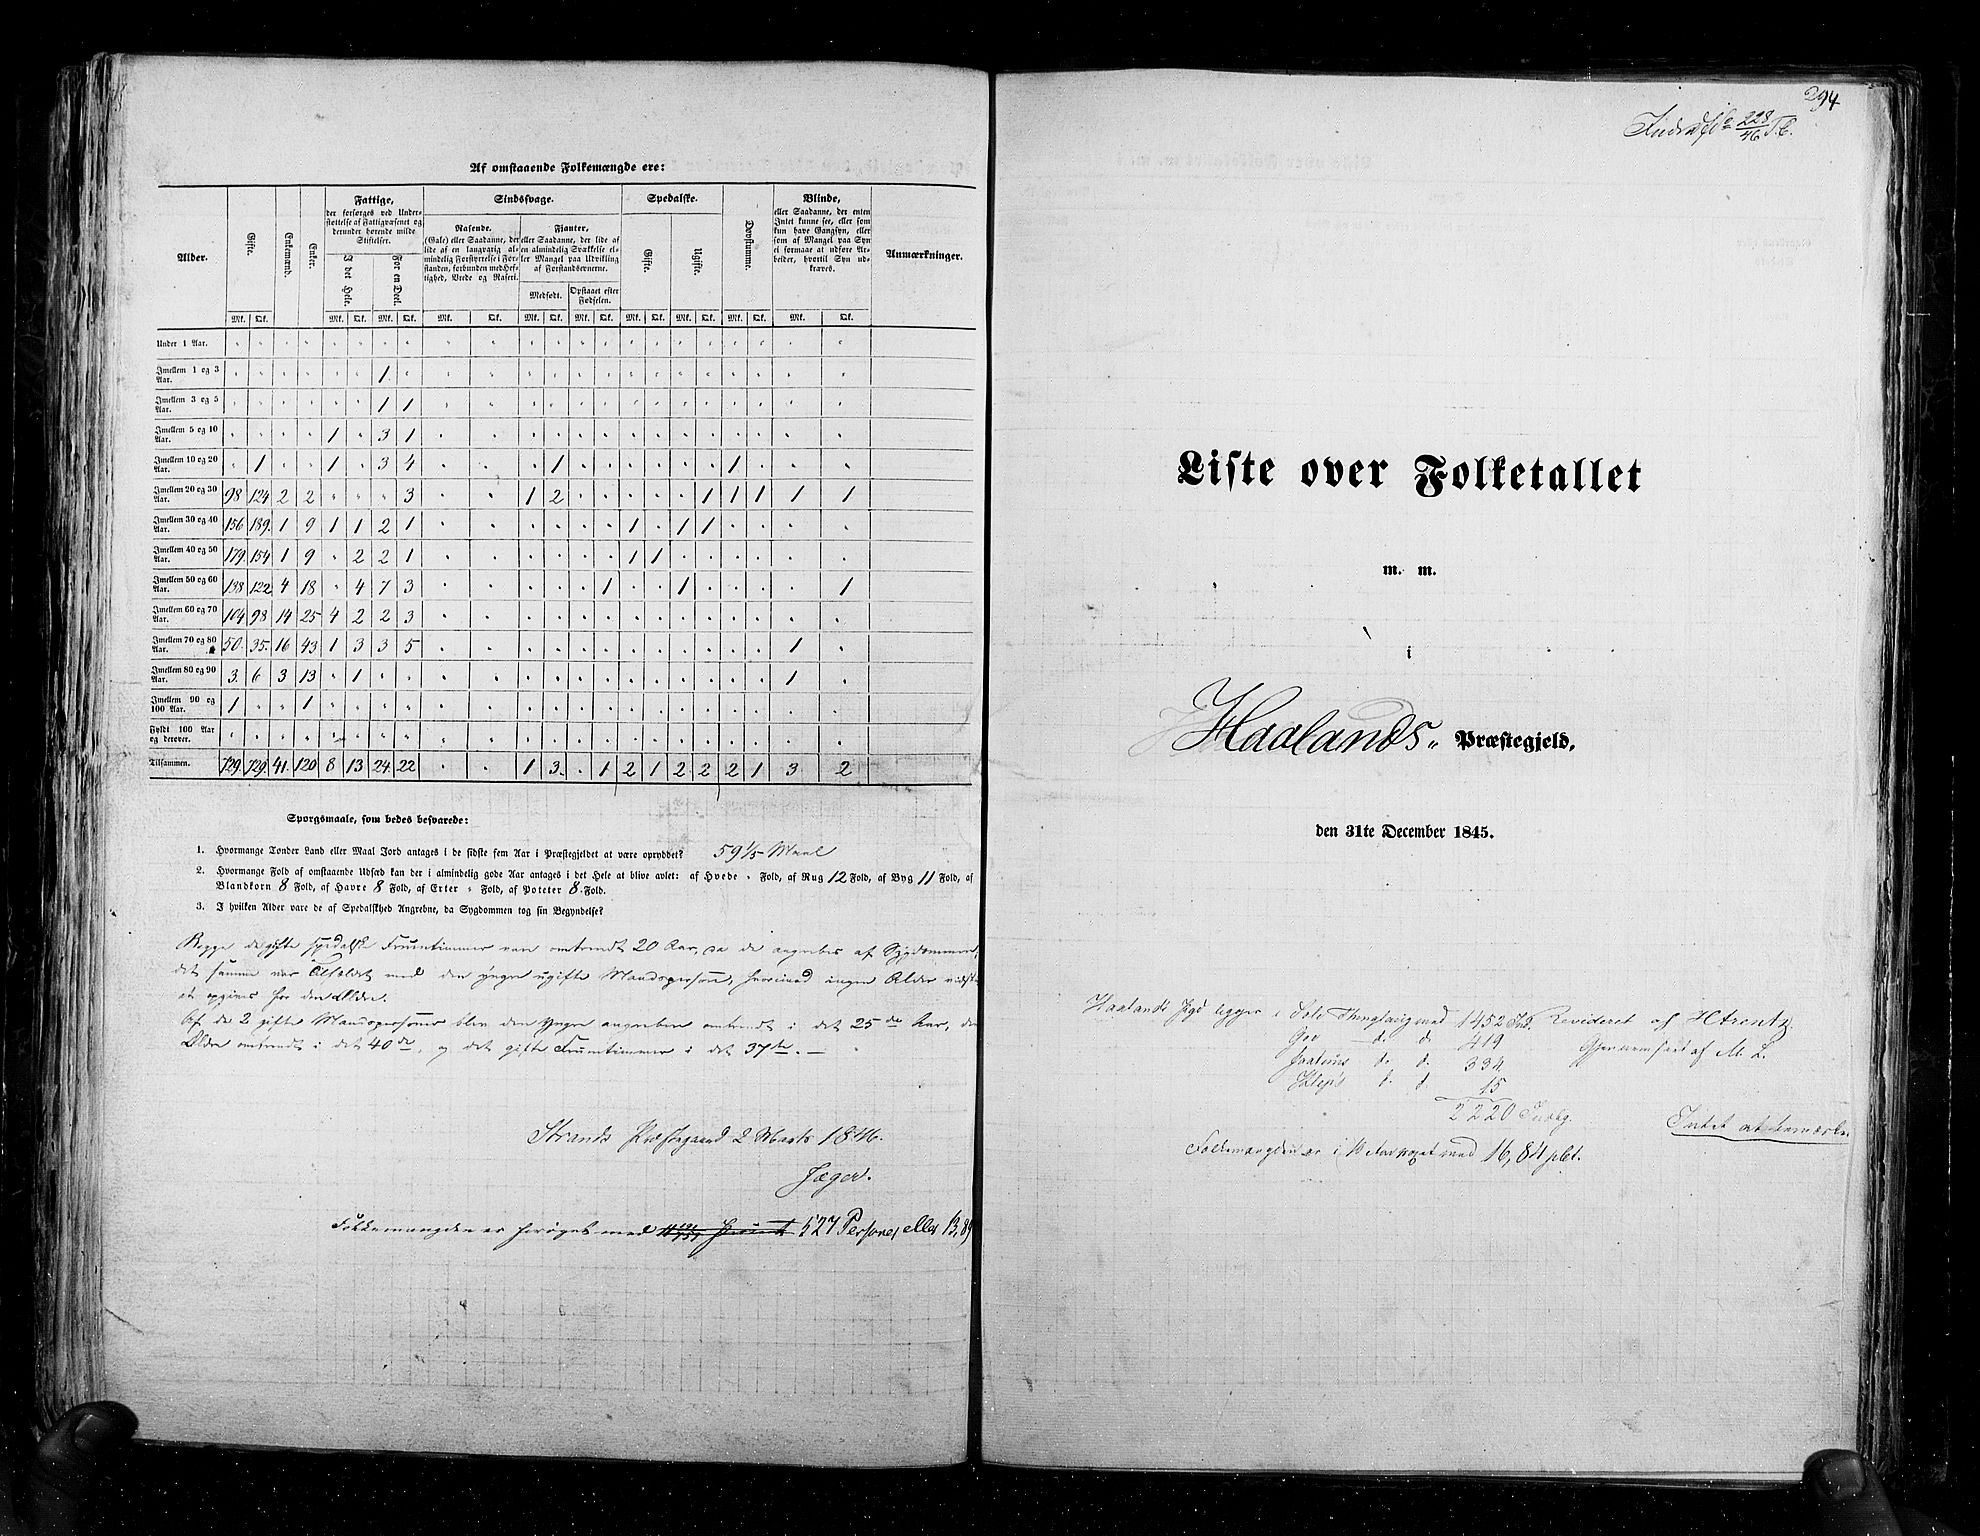 Af omstaaende Folkemængde ere:
Alder.
Gifte.
Enkemænd.
Enker.
Fattige,
der forsørges ved Under-
støttelse af Fattigvæsenet og
derunder hørende milde
Stiftelser.
I det Hele.
For en Deel.
Sindssvage.
Rasende.
(Gale) eller Saadanne, der
lide af en langvarig al-
mindelig Forstyrrelse i For-
standen, forbunden med Hef-
tighed, Vrede og Raseri.
Fianter,
eller Saadanne, der lide af
en almindelig Svækkelse el-
ler Mangel paa Udvikling
af Forstandsevnerne.
Medfødt.
Opstaaet efter
Fødselen.
Spedalske.
Gifte.
Ugifte.
Døvstumme.
Blinde,
eller Saadanne, der enten
Intet kunne see, eller som
kun have Gangsyn, eller
som af Mangel paa Syn
ei formaae at udføre Ar-
beider, hvortil Syn ud-
kræves.
Anmærkninger.
Mk. Qk. Mk. Qk. Mk. Qk. Mk. Qk. Mk. Qk. Mk. Qk. Mk. Qk. Mk. Qk. Mk. Qk. Mk. Qk.
Under 1 Aar. " " " " " " " " " " " " " " " " " " " " " "
Imellem 1 og 3 Aar. " " " " " " 1 " " " " " " " " " " " " " " "
Imellem 3 og 5 Aar. " " " " " " 1 1 " " " " " " " " " " " " " "
Imellem 5 og 10 Aar. " " " " 1 " 3 1 " " " " " " " " " " " " " "
Imellem 10 og 20 Aar. " 1 " " 1 " 3 4 " " " 1 " " " " " " 1 " " "
Imellem 20 og 30 Aar. 98 124 2 2 " " " 3 " " 1 2 " " " " " 1 1 1 1 1
Imellem 30 og 40 Aar. 156 189 1 9 1 1 2 1 " " " " " " 1 " 1 1 " " " "
Imellem 40 og 50 Aar. 179 154 1 9 " 2 2 1 " " " " " " 1 1 " " " " " "
Imellem 50 og 60 Aar. 138 122 4 18 " 4 7 3 " " " " " 1 " " 1 " " " " 1
Imellem 60 og 70 Aar. 104 98 14 25 4 2 2 3 " " " " " " " " " " " " " "
Imellem 70 og 80 Aar. 50 35 16 43 1 3 3 5 " " " " " " " " " " " " 1 "
Imellem 80 og 90 Aar. 3 6 3 13 " 1 " " " " " " " " " " " " " " 1 "
Imellem 90 og 100 Aar. 1 " " 1 " " " " " " " " " " " " " " " " " "
Fyldt 100 Aar og derover. " " " " " " " " " " " " " " " " " " " " " "
Tilsammen. 729 729 41 120 8 13 24 22 " " 1 3 " 1 2 1 2 2 2 1 3 2
Spørgsmaale, som bedes besvarede:
1. Hvormange Tønder Land eller Maal Jord antages i de sidste fem Aar i Præstegjeldet at være opryddet? 59 1/5 Maal
2. Hvormange Fold af omstaaende Udsæd kan der i almindelig gode Aar antages i det Hele at blive avlet: af Hvede " Fold, af Rug 12 Fold, af Byg 11 Fold, af
Blandkorn 8 Fold, af Havre 8 Fold, af Erter " Fold, af Poteter 8 Fold.
3. I hvilken Alder vare de af Spedalskhed Angrebne, da Sygdommen tog sin Begyndelse?
Begge de ugifte spedalske Fruentimmer vare omtrendt 20 Aar, da de angrebes af Sygdommen,
det samme var Tilfældet med den yngre ugifte Mandsperson, hvorimod ingen Alder vidste
at opgives for den Ældre.
Af de 2 gifte Mandspersoner blev den Yngre angreben omtrendt i det 25de Aar, den
Ældre omtrendt i det 40de, og det gifte Fruentimmer i det 37te. —
Strands Præstegaard 2 Marts 1846.
Jæger.
Folkemængden er forøget med 527 Personer eller 13,89
294
228/46
Liste over Folketallet
m. m.
i
Haalands Præstegjeld,
den 31te December 1845.
Haalands Pgd ligger i Sole Thinglaug med 1452 Ind. Revideret af HArentz.
d. d. 419 Gjennemseet af M. L.
Jæderns d. d. 334
Klep's d. d. 15
2220 Indbg.
Intet at bemærke
Folkemængden er i 10 Aar voxet med 16,84 pCt.